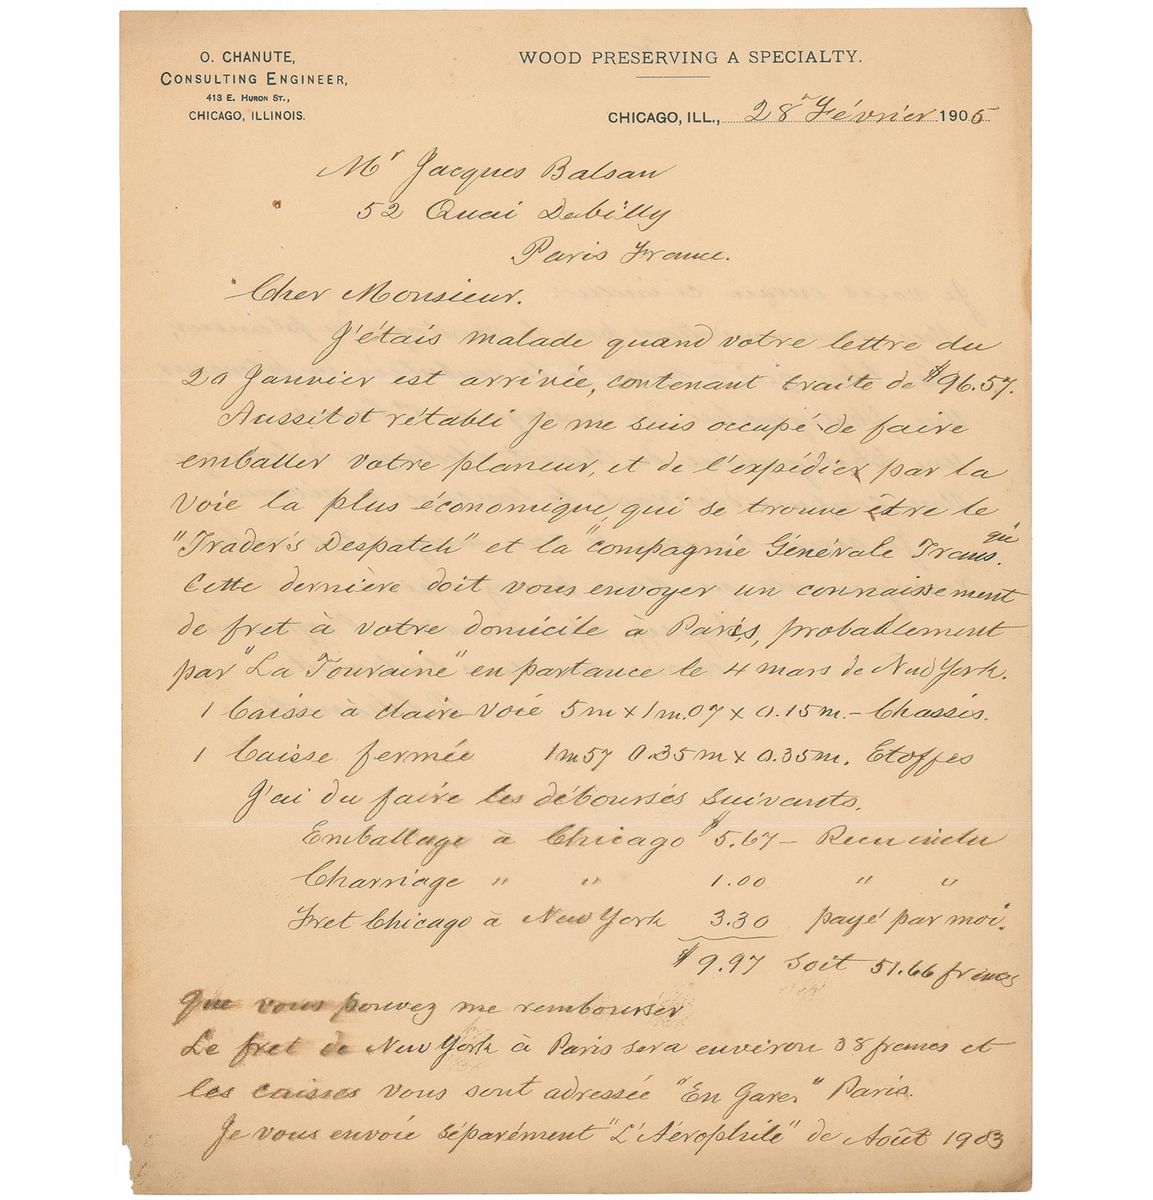 O. CHANUTE,
CONSULTING ENGINEER,
413 E. HURON ST.,
CHICAGO, ILLINOIS.
WOOD PRESERVING A SPECIALTY.
CHICAGO, ILL., 28 Février 1905
Mr Jacques Balsan
52 Quai Debilly
Paris France.
Cher Monsieur.
J'étais malade quand votre lettre du
20 Janvier est arrivée, contenant traite de $96.57.
Aussitot rétabli je me suis occupé de faire
emballer votre planeur, et de l'expédier par la
voie la plus économique, qui se trouve être le
"Trader's Despatch" et la "Compagnie Générale Transque.
Cette dernière doit vous envoyer un connaissement
de fret à votre domicile à Paris, probablement
par "La Touraine" en partance le 4 mars de New York.
1 Caisse à claire voie 5m x 1m.07 x 0.15m. - Chassis.
1 Caisse fermée 1m57 0.35m x 0.35m. Etoffes
J'ai du faire les déboursés suivants.
Emballage à Chicago $5.67 - Recu inclu
Charriage " " 1.00 " "
Fret Chicago à New York 3.30 payé par moi.
$9.97 soit 51.66 francs
que vous pouvez me rembourser
Le fret de New York à Paris sera environ 38 francs et
les caisses vous sont adressée "En Gare" Paris.
Je vous envoie séparément "L'Aérophile" de Août 1903